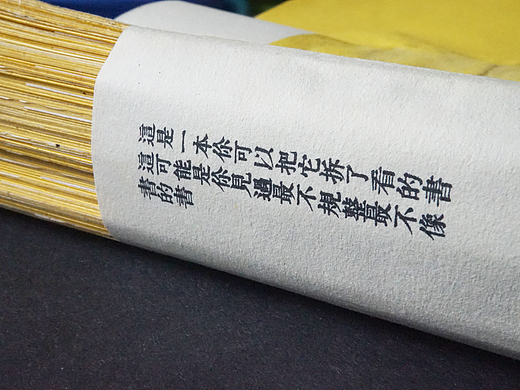 這是一本你可以把它拆了看的書
這可能是你見過最不規整最不像
書的書